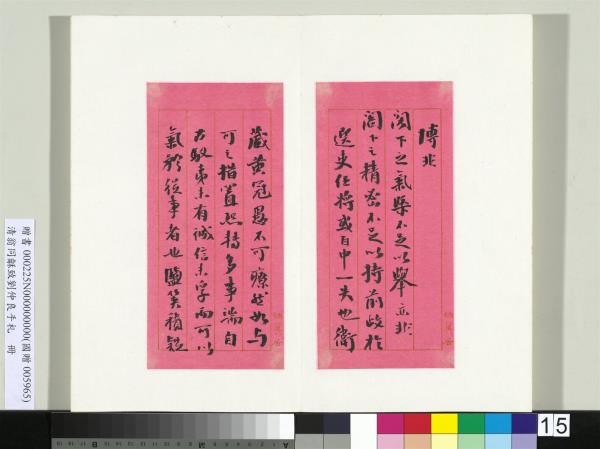 博非
閣下之氣槩不足以舉亦非
閣下之精密不足以持前政於
逸史任將或自中一失也衛
藏黃冠愚不可瞭然如与
可之措置熙攘多事端自
古馭夷未有誠信未孚而可以
氣矜從事者也
贈書000225N000000000(國贈005965)
清翁同龢致劉仲良手札 冊
15